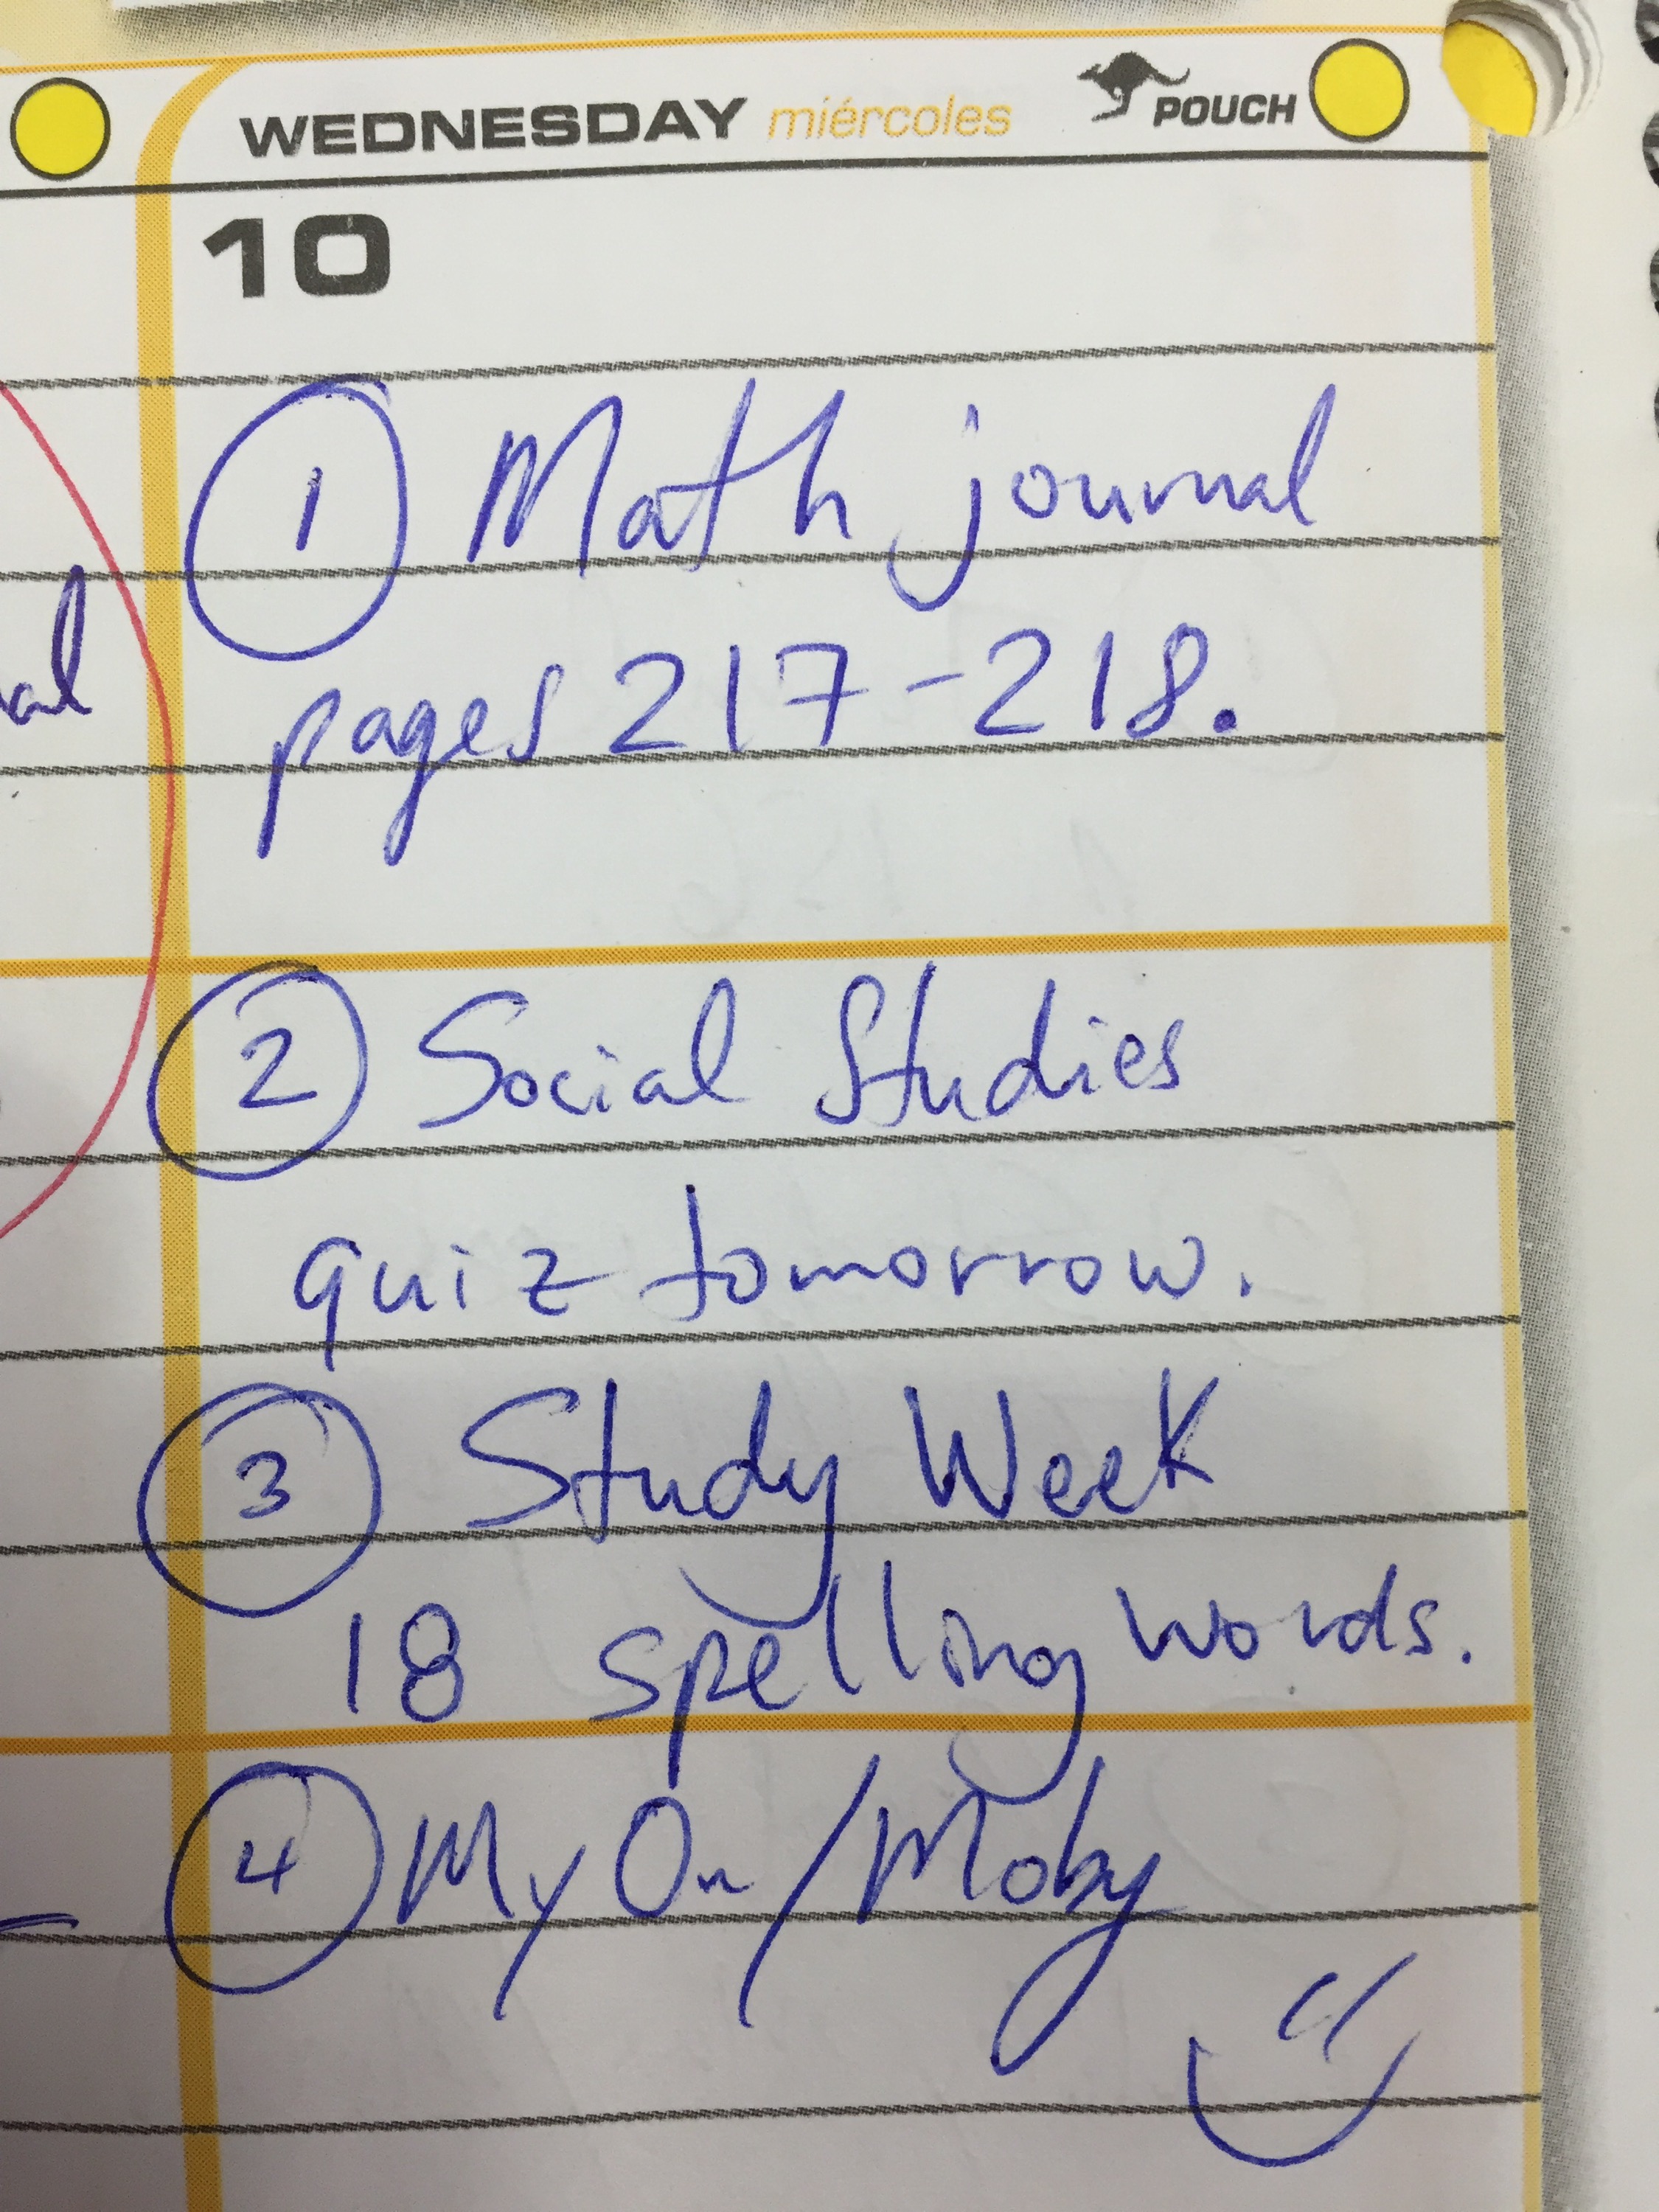 WEDNESDAY miércoles POUCH
10
1 Math journal
pages 217-218.
2 Social Studies
quiz tomorrow.
3 Study Week
18 spelling words.
4 My On/Moby
al